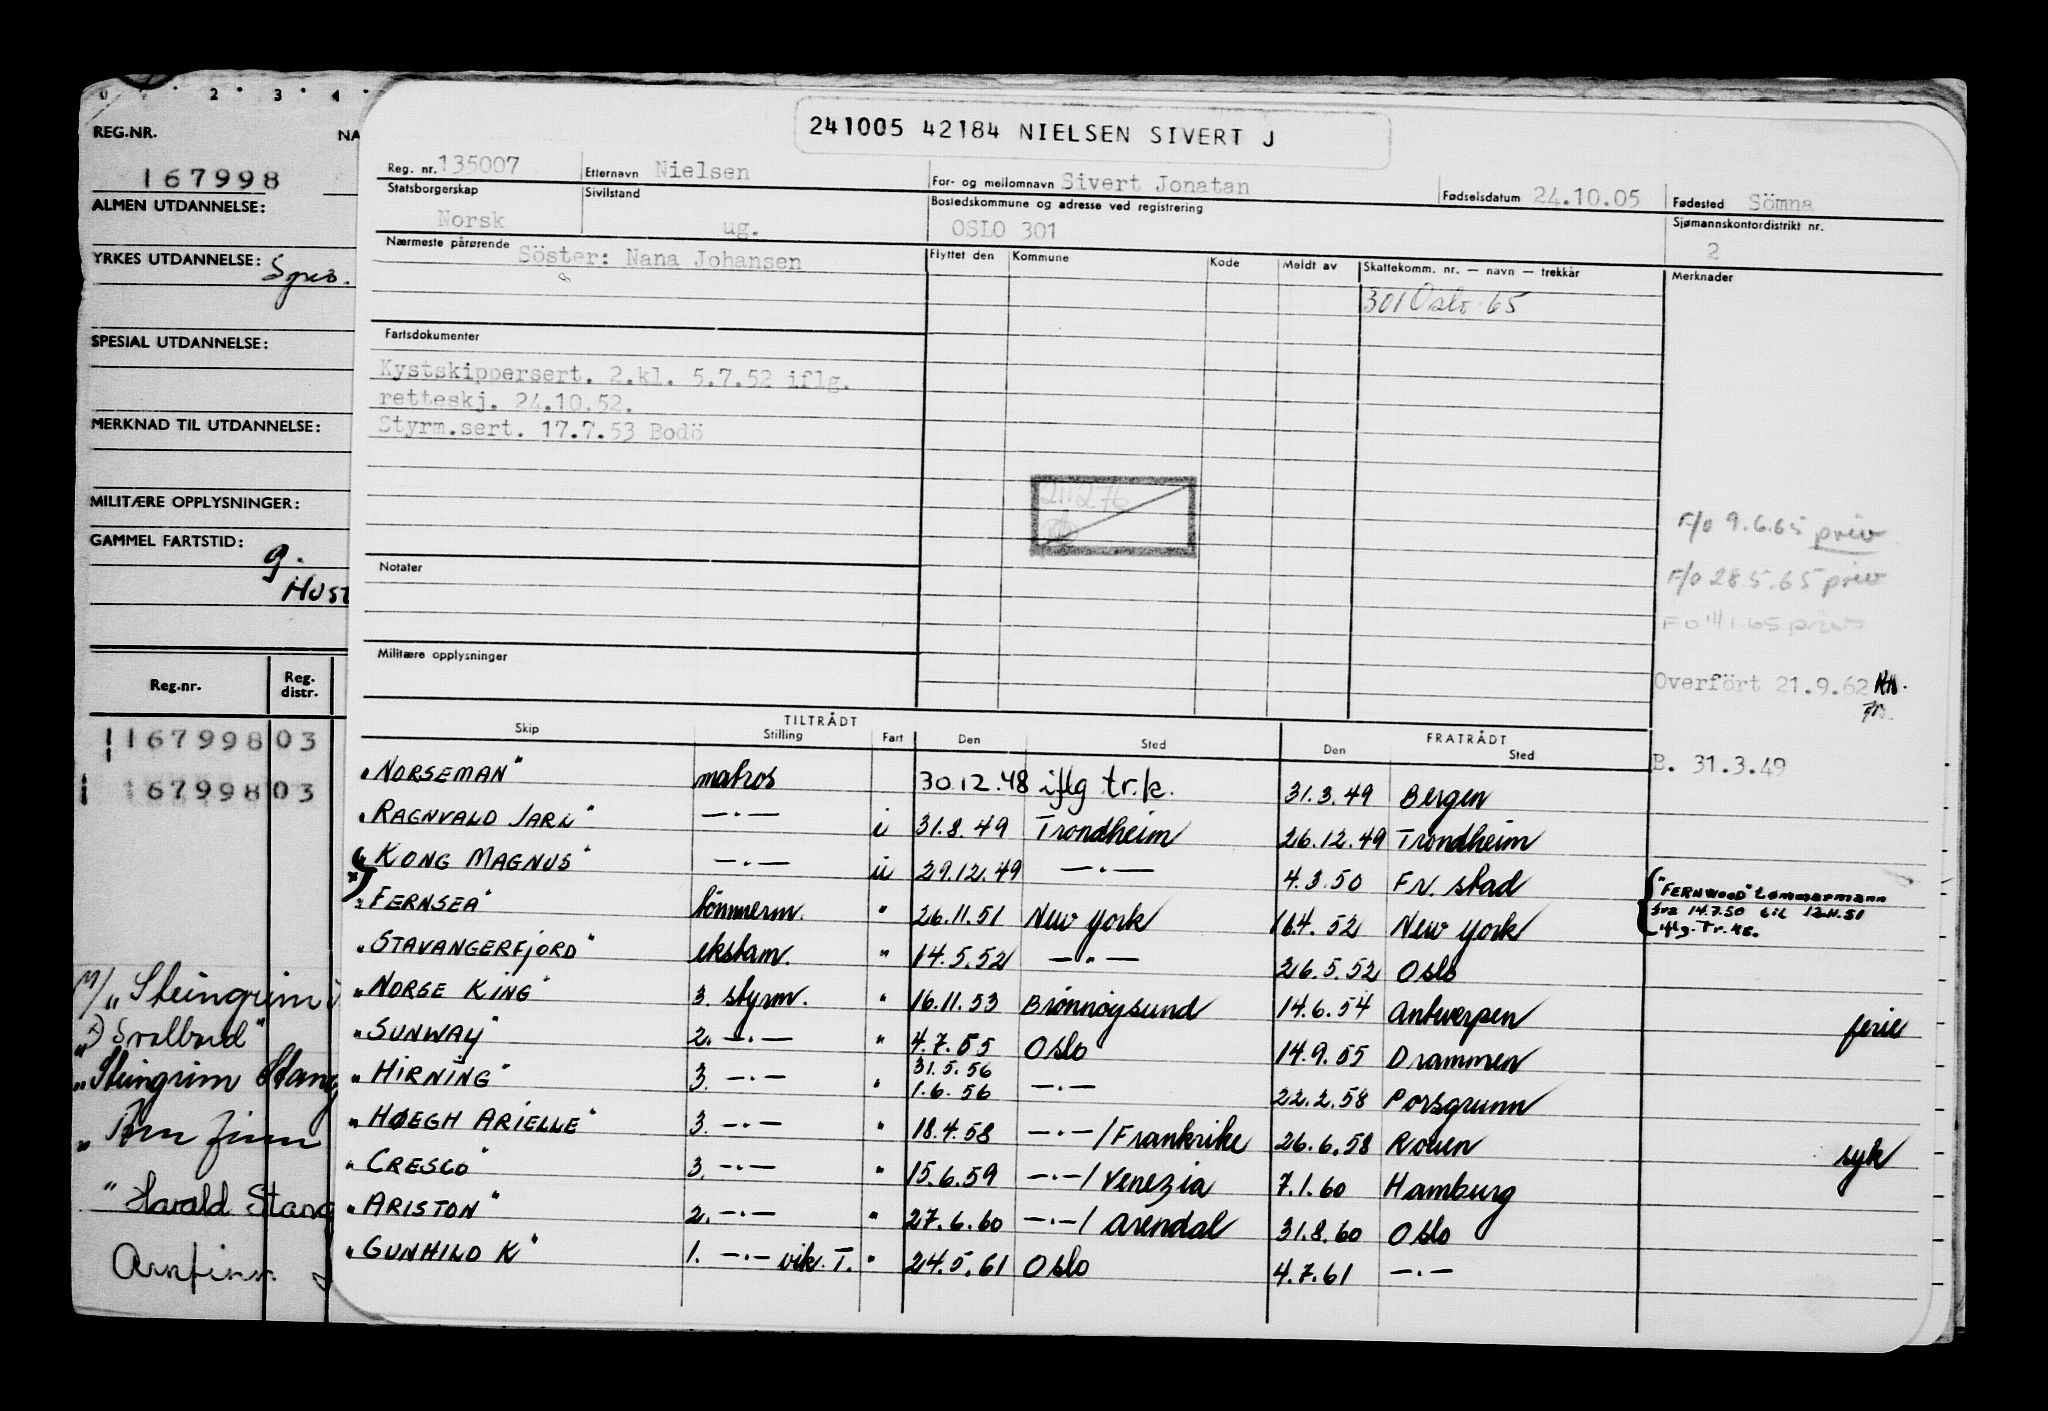 0 · 2 · 3 · 4 ·
REG.NR. NA
167998
ALMEN UTDANNELSE:
YRKES UTDANNELSE:
SPESIAL UTDANNELSE:
MERKNAD TIL UTDANNELSE:
MILITÆRE OPPLYSNINGER:
GAMMEL FARTSTID: g.
HUST
Reg.nr. Reg. distr.
167998 03
167998 03
"Steingrim
Svalbard"
"Steingrim Stang
"Harald Stang
Arnfinn
241005 42184 NIELSEN SIVERT J
Reg. nr. 135007 Etternavn Nielsen For- og mellomnavn Sivert Jonatan Fødselsdatum 24.10.05 Fødested Sömna
Statsborgerskap Sivilstand Bostedskommune og adresse ved registrering Sjømannskontordistrikt nr.
Norsk ug. OSLO 301 2
Nærmeste pårørende Söster: Nana Johansen Flyttet den Kommune Kode Meldt av Skattekomm. nr. — navn — trekkår Merknader
301 Oslo 65
Fartsdokumenter
Kystskippersert. 2.kl. 5.7.52 iflg.
retteskj. 24.10.52.
Styrm.sert. 17.7.53 Bodö
F/o 9.6.65 priv
Notater
F/o 28.5.65 priv
Militære opplysninger
Overfört 21.9.62
TILTRÅDT FRATRÅDT
Skip Stilling Fart Den Sted Den Sted
B. 31.3.49
"NORSEMAN" matros 30.12.48 iflg tr.k. 31.3.49 Bergen
"RAGNVALD JARL" —·— i 31.8.49 Trondheim 26.12.49 Trondheim
"KONG MAGNUS" —·— u 29.12.49 —·— 4.3.50 Fr. stad
"FERNWOOD" tømmermann
fra 14.7.50 til 12.11.51
iflg. Tr. k.
"FERNSEA" tömmerm. " 26.11.51 New York 16.4.52 New York
"STAVANGERFJORD" ekstam. " 14.5.52 —"— 26.5.52 Oslo
"NORSE KING" 3. styrm. " 16.11.53 Brønnøysund 14.6.54 Antwerpen ferie
"SUNWAY" 2. —·— " 4.7.55 Oslo 14.9.55 Drammen
31.5.56
"HIRNING" 3. —·— " 1.6.56 —·— 22.2.58 Porsgrunn
"HØEGH ARIELLE" 3. —·— " 18.4.58 —·—/Frankrike 26.6.58 Rouen syk
"CRESCO" 3. —·— " 15.6.59 —·—/Venezia 7.1.60 Hamburg
"ARISTON" 2. —·— " 27.6.60 —·—/Arendal 31.8.60 Oslo
"GUNHILD K" 1. —·— vik. T. " 24.5.61 Oslo 4.7.61 —·—